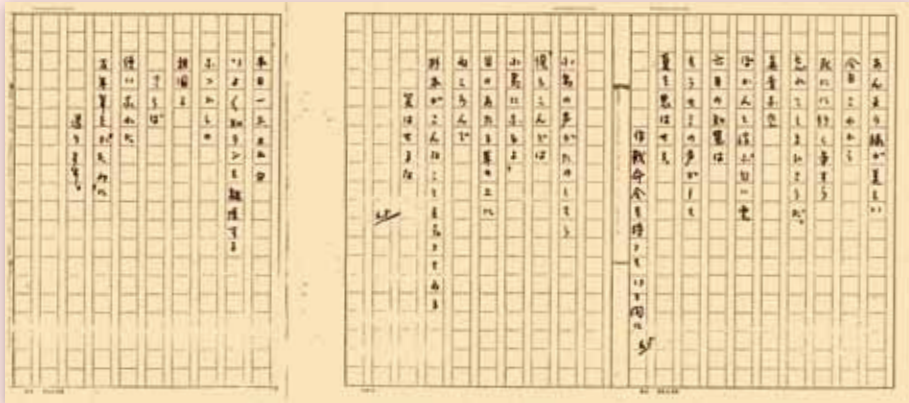 あんまり緑が美しい
今日これから
死にに行く事すら
忘れてしまいそうだ。
真青な空
ぽかんと浮ぶ白い雲
六月の知覧は
もうセミの声がして
夏を思はせる
作戦命令を待っている間に
小鳥の声がたのしそう
俺もこんどは
小鳥になるよ
日のあたる草の上に
ねころんで
杉本がこんなことを云っている
笑はせるな
本日一三、三五分
いよいよ知ランを離陸する
なつかしの
祖国よ
さらば
使いなれた
万年筆をかたみに
送ります。